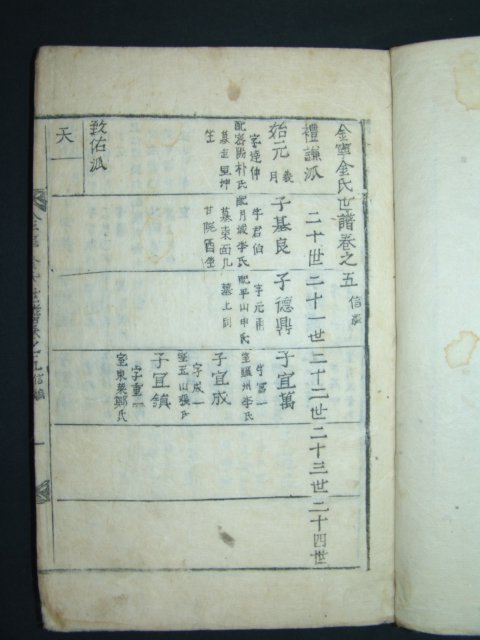 金寧金氏世譜卷之五 信編
禮謙派
二十世 二十一世 二十二世 二十三世 二十四世
始元
子基良
子德鼎
子宜萬
字達伸
配密陽朴氏
墓
坤
坐
字君伯
配月城李氏
墓東面九
酉坐
字元甫
配平山申氏
墓上同
李氏
子宜成
字成一
室玉山張氏
子宜鎮
字重一
室東萊鄭氏
敦佑派
天